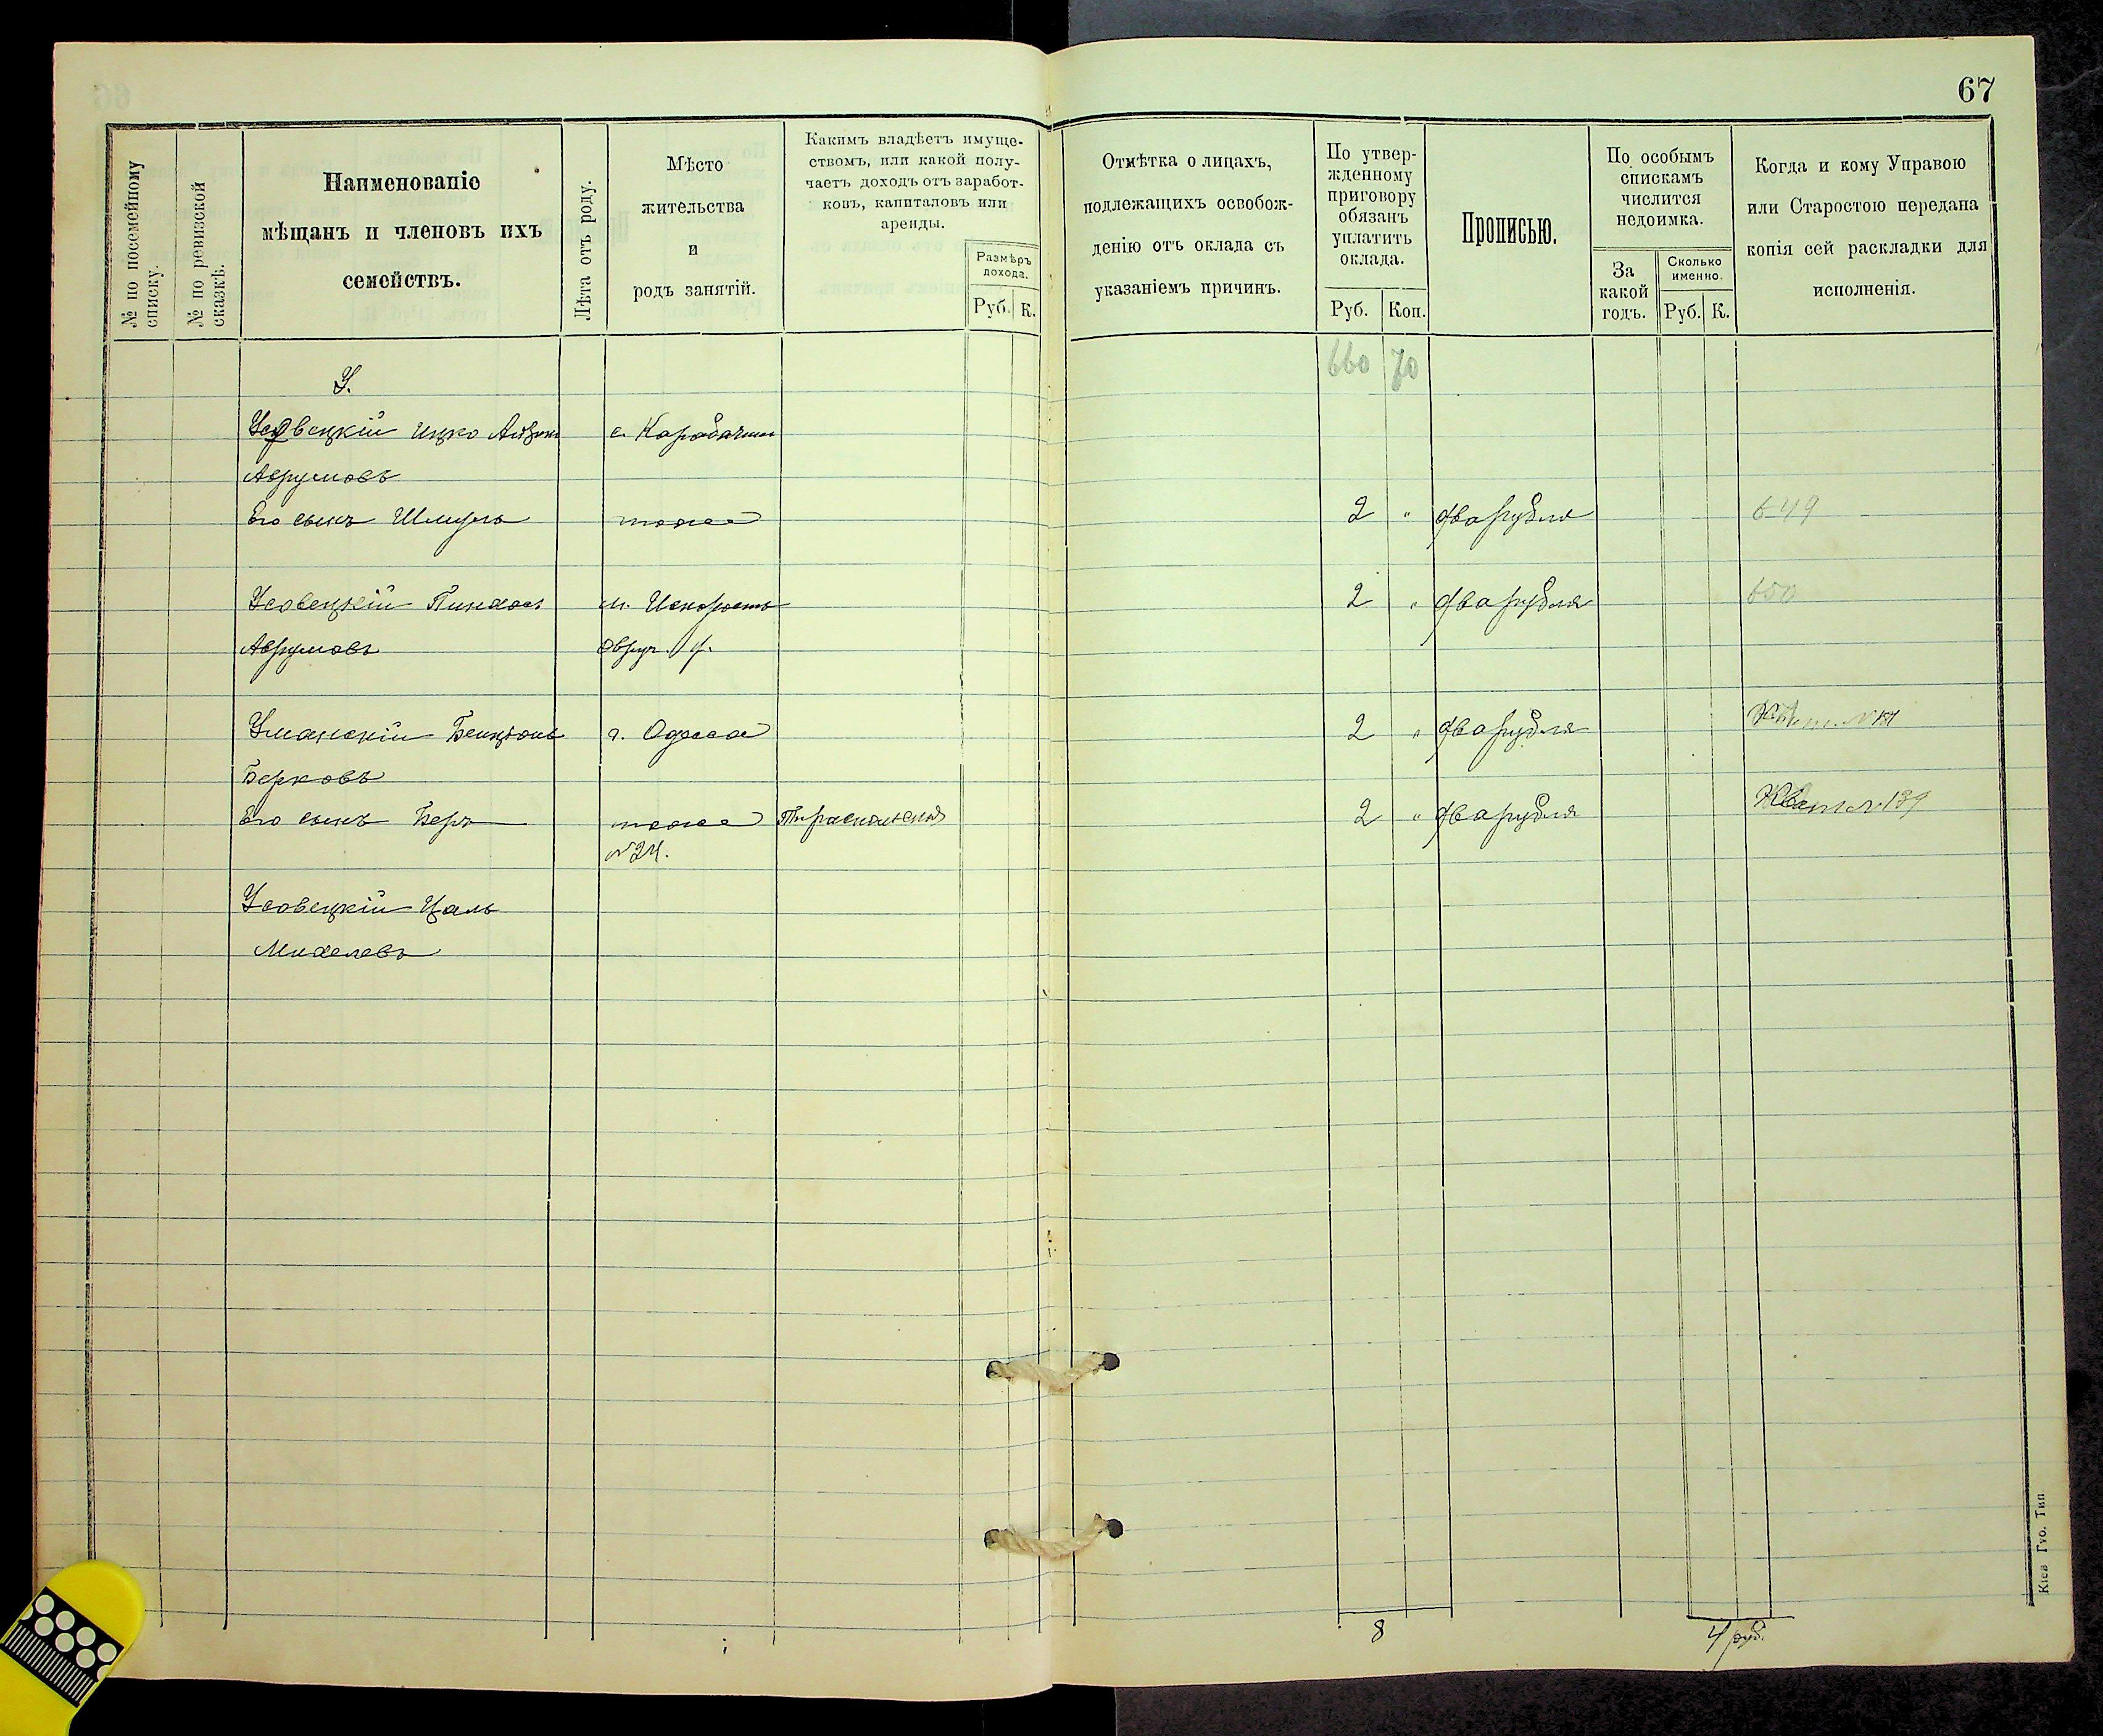 67
№ по посемейному списку.
№ по ревизской сказкѣ.
Наименованіе
мѣщанъ и членовъ ихъ
семействъ.
Лѣта отъ роду.
Мѣсто
жительства
и
родъ занятій.
Какимъ владѣетъ имуще-
ствомъ, или какой полу-
чаетъ доходъ отъ заработ-
ковъ, капиталовъ или
аренды.
Размѣръ
дохода.
Руб. К.
Отмѣтка о лицахъ,
подлежащихъ освобож-
денію отъ оклада съ
указаніемъ причинъ.
По утвер-
жденному
приговору
обязанъ
уплатить
оклада.
Руб. Коп.
Прописью.
По особымъ
спискамъ
числится
недоимка.
За
какой
годъ.
Сколько
именно.
Руб. К.
Когда и кому Управою
или Старостою передана
копія сей раскладки для
исполненія.
660 70
У.
Усовецкій Ицко с. Карабачин
Аврумовъ
Его сынъ Шмуль тоже 2 " два рубля 649
Усовецкій Пинхас м. Искорость 2 " два рубля 650
Аврумовъ Овруч. у.
Уманскій Бенціонъ г. Одесса 2 " два рубля
Берковъ
Его сынъ Беръ тоже Тираспольская 2 " два рубля Квит. № 139
№ 24.
Усовецкій Цаль
Михелевъ
8 4 руб.
Кіев Губ. Тип